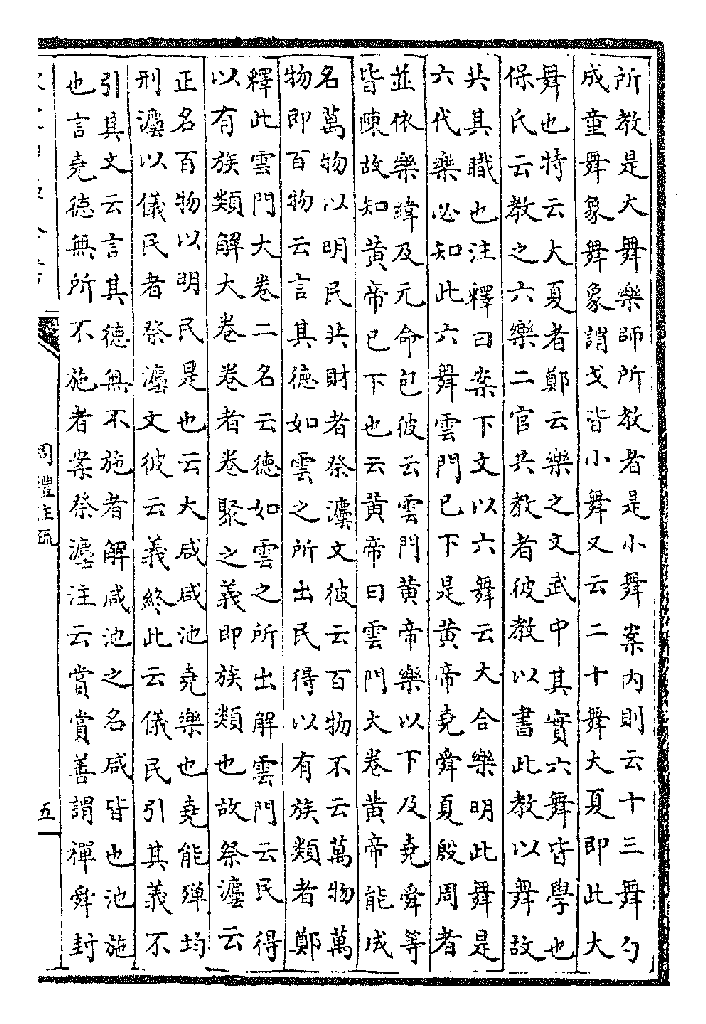 所教是大舞樂師所教者是小舞案内則云十三舞勺
成童舞象舞象謂戈皆小舞又云二十舞大夏即此大
舞也特云大夏者鄭云樂之文武中其實六舞皆學也
保氏云教之六樂二官共教者彼教以書此教以舞故
共其職也注釋曰案下文以六舞云大合樂明此舞是
六代樂必知此六舞雲門已下是黄帝堯舜夏殷周者
並依樂緯及元命包彼云雲門黄帝樂以下及堯舜等
皆陳故知黄帝已下也云黄帝曰雲門大卷黄帝能成
名萬物以明民共財者祭灋文彼云百物不云萬物萬
物即百物云言其德如雲之所出民得以有族類者鄭
釋此雲門大卷二名云德如雲之所出解雲門云民得
以有族類解大卷卷者卷聚之義即族類也故祭灋云
正名百物以明民是也云大咸咸池堯樂也堯能殫均
刑灋以儀民者祭灋文彼云義終此云儀民引其義不
引其文云言其德無不施者解咸池之名咸皆也池施
也言堯德無所不施者案祭灋注云賞賞善謂禪舜封
周禮注疏
五